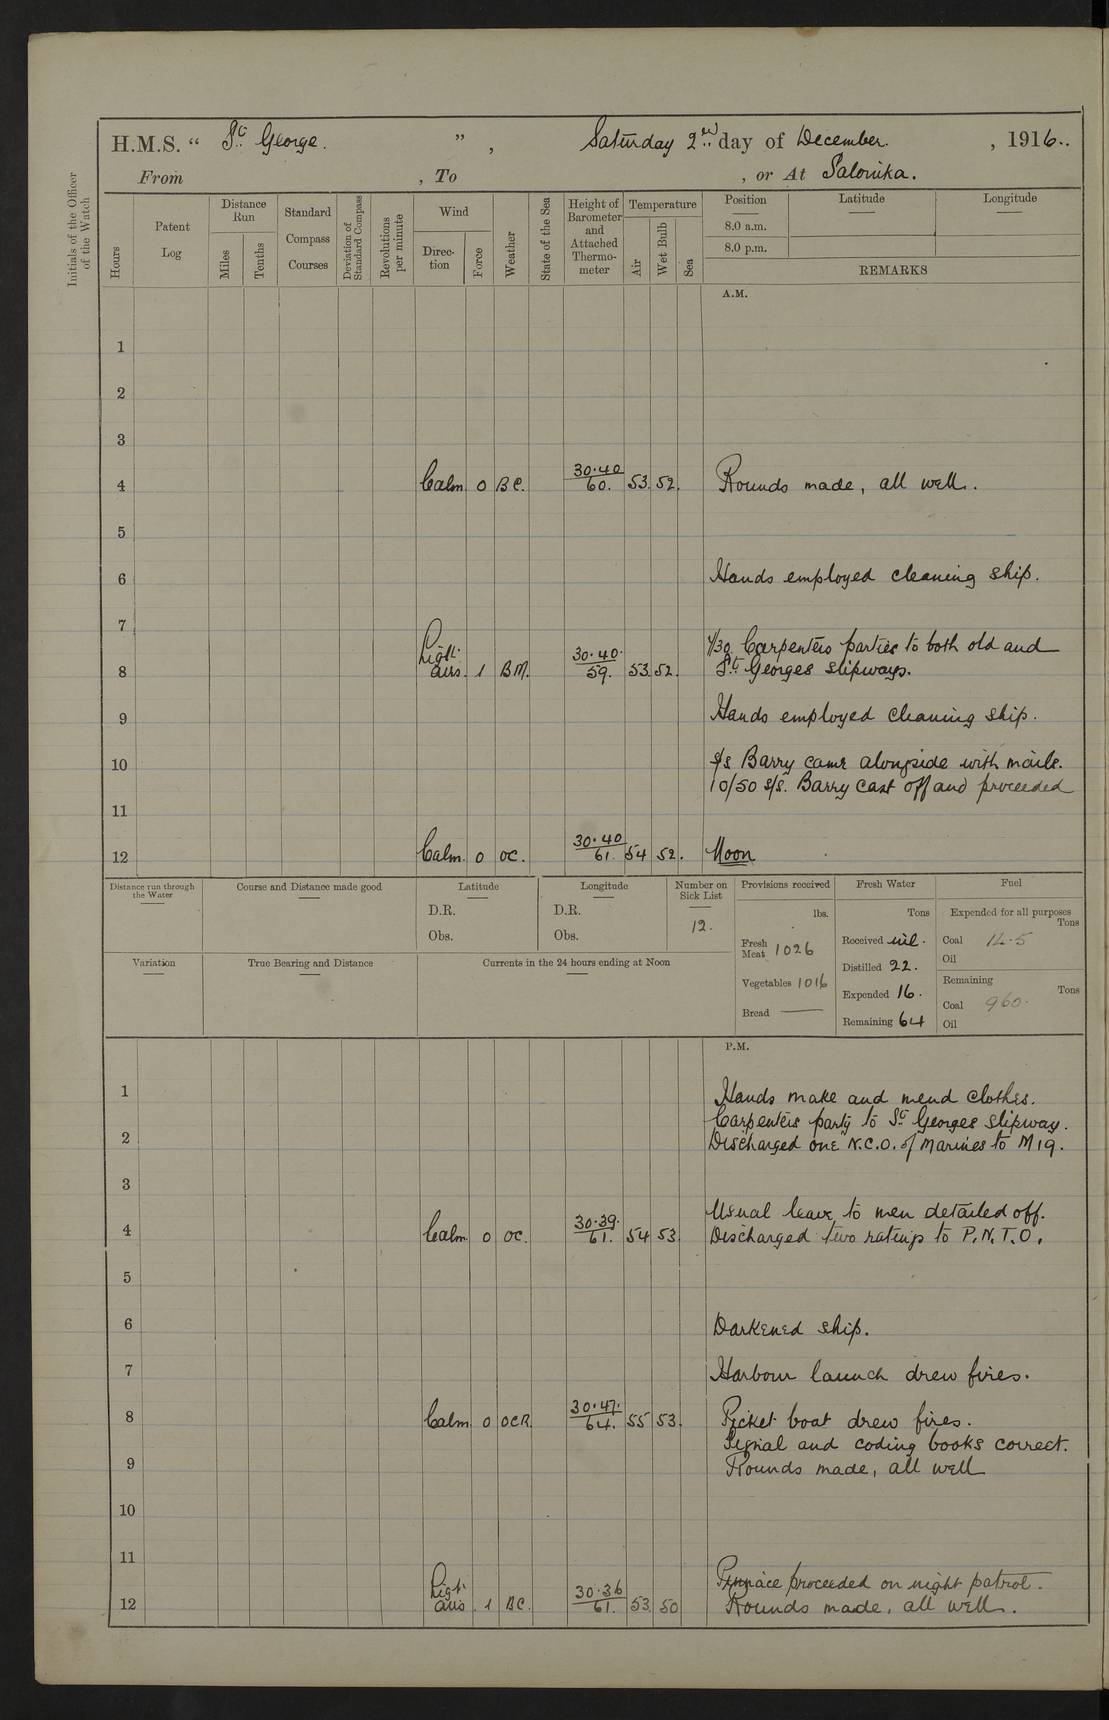 H.M.S. “ St George. ”, Saturday 2nd day of December. , 1916..
From , To , or At Salonika.
Initials of the Officer of the Watch
Hours
Patent Log
Distance Run
Miles
Tenths
Standard Compass Courses
Deviation of Standard Compass
Revolutions per minute
Wind
Direc-tion
Force
Weather
State of the Sea
Height of Barometer and Attached Thermo-meter
Temperature
Air
Wet Bulb
Sea
Position
8.0 a.m.
8.0 p.m.
Latitude
Longitude
REMARKS
A.M.
1
2
3
4 Calm 0 BC. 30.40/60. 53. 52. Rounds made, all well.
5
6 Hands employed cleaning ship.
7
7/30 Carpenters parties to both old and
8 Light airs. 1 BM. 30.40./59. 53. 52. St Georges slipways.
9 Hands employed cleaning ship.
10 s/s Barry came alongside with mails.
10/50 s/s. Barry cast off and proceeded
11
12 Calm. 0 OC. 30.40/61. 54 52. Noon
Distance run through the Water
Course and Distance made good
Latitude
D.R.
Obs.
Longitude
D.R.
Obs.
Number on Sick List
12.
Provisions received
lbs.
Fresh Meat 1026
Vegetables 1016
Bread —
Fresh Water
Tons
Received nil.
Distilled 22.
Expended 16.
Remaining 64
Fuel
Expended for all purposes
Tons
Coal 14.5
Oil
Remaining
Tons
Coal 960.
Oil
Variation
True Bearing and Distance
Currents in the 24 hours ending at Noon
P.M.
1 Hands make and mend clothes.
Carpenters party to St Georges slipway.
2 Discharged one N.C.O. of Marines to M19.
3
Usual leave to men detailed off.
4 Calm 0 OC. 30.39./61. 54 53. Discharged two ratings to P.N.T.O.
5
6 Darkened ship.
7 Harbour launch drew fires.
8 Calm 0 OCR. 30.47./64. 55 53. Picket boat drew fires.
Signal and coding books correct.
9 Rounds made, all well
10
11
Pinnace proceeded on night patrol.
12 Light airs. 1 BC. 30.36/61. 53. 50 Rounds made, all well.